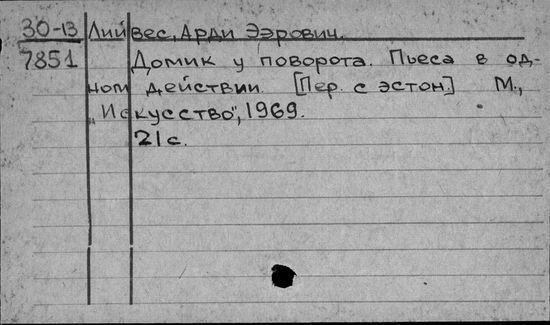 30-13 Лийвес, Арди Ээрович.
7851 Домик у поворота. Пьеса в од-
ном действии. [Пер. с эстон.] М.,
"Искусство", 1969.
21 с.